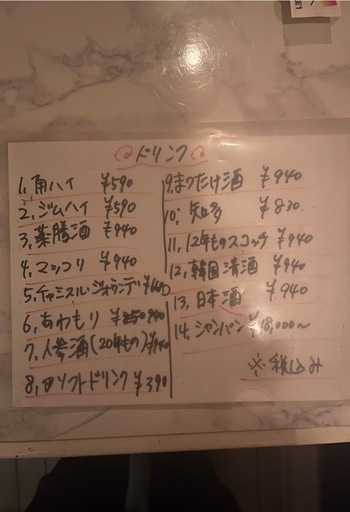 ドリンク
1. 角ハイ ¥590
2. ジムハイ ¥590
3. 薬膳酒 ¥940
4. マッコリ ¥940
5. チャミスル ジオランデ
6. あわもり
7. 人参酒(20年もの)¥940
8. ソフトドリンク ¥390
9. まつたけ酒 ¥940
10. 知多 ¥830
11. 12年ものスコッチ ¥940
12. 韓国清酒 ¥940
13. 日本酒 ¥940
14. シャンパン ¥18,000〜
※税込み